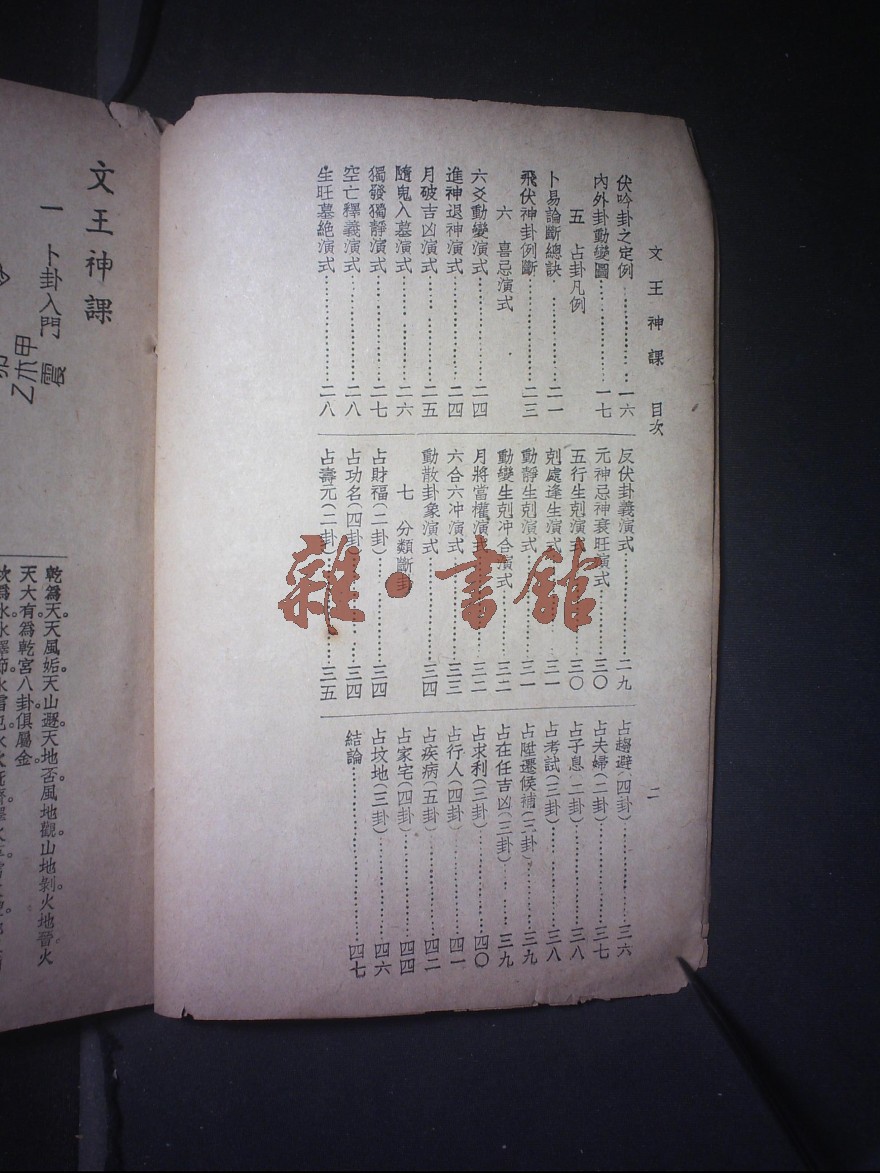 文王神課　目次
二
伏吟卦之定例…………一六
內外卦動變圖…………一七
五　占卦凡例
卜易論斷總訣…………二一
飛伏神卦例斷…………二三
六　喜忌演式
六爻動變演式…………二四
進神退神演式…………二四
月破吉凶演式…………二五
隨鬼入墓演式…………二六
獨發獨靜演式…………二七
空亡釋義演式…………二八
生旺墓絕演式…………二八
反伏卦義演式…………二九
元神忌神衰旺演式…………三〇
五行生剋演式…………三〇
剋處逢生演式…………三一
動靜生剋演式…………三一
動變生剋冲合演式…………三二
月將當權演式…………三二
六合六冲演式…………三三
動散卦象演式…………三四
七　分類斷卦
占財福(二卦)…………三四
占功名(四卦)…………三四
占壽元(二卦)…………三五
占趨避(四卦)…………三六
占夫婦(二卦)…………三七
占子息(二卦)…………三八
占考試(三卦)…………三八
占陞遷候補(二卦)…………三九
占在任吉凶(三卦)…………三九
占求利(三卦)…………四〇
占行人(四卦)…………四一
占疾病(五卦)…………四二
占家宅(四卦)…………四四
占坟地(三卦)…………四六
結論…………四七
雜·書館
文王神課
一　卜卦入門
震
甲木乙
乾爲天。天風姤。天山遯。天地否。風地觀。山地剝。火地晉。火
天大有。爲乾宮八卦俱屬金。